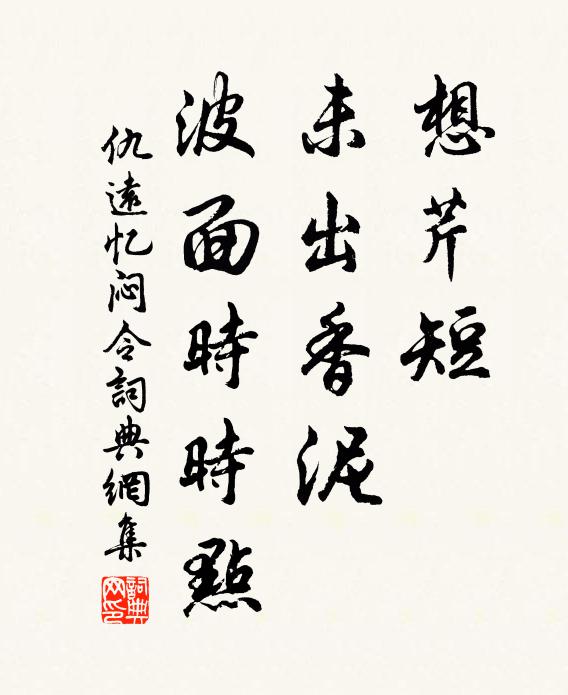 想芹短
未出香泥
波面時時點
仇遠忆闷令詞典網集
詞典
网印